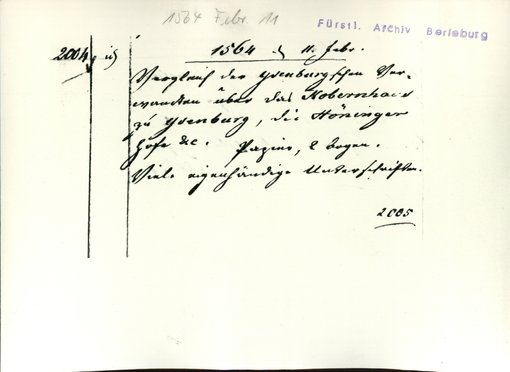 1564 Febr. 11
Fürstl. Archiv Berleburg
2004 1564 d 11. Febr.
Vergleich der Ysenburgschen Ver-
wandten über das Kobernhaus
zu Ysenburg, die Höninger
Höfe &c. Papier, 2 Bogen.
Viele eigenhändige Unterschriften.
2005